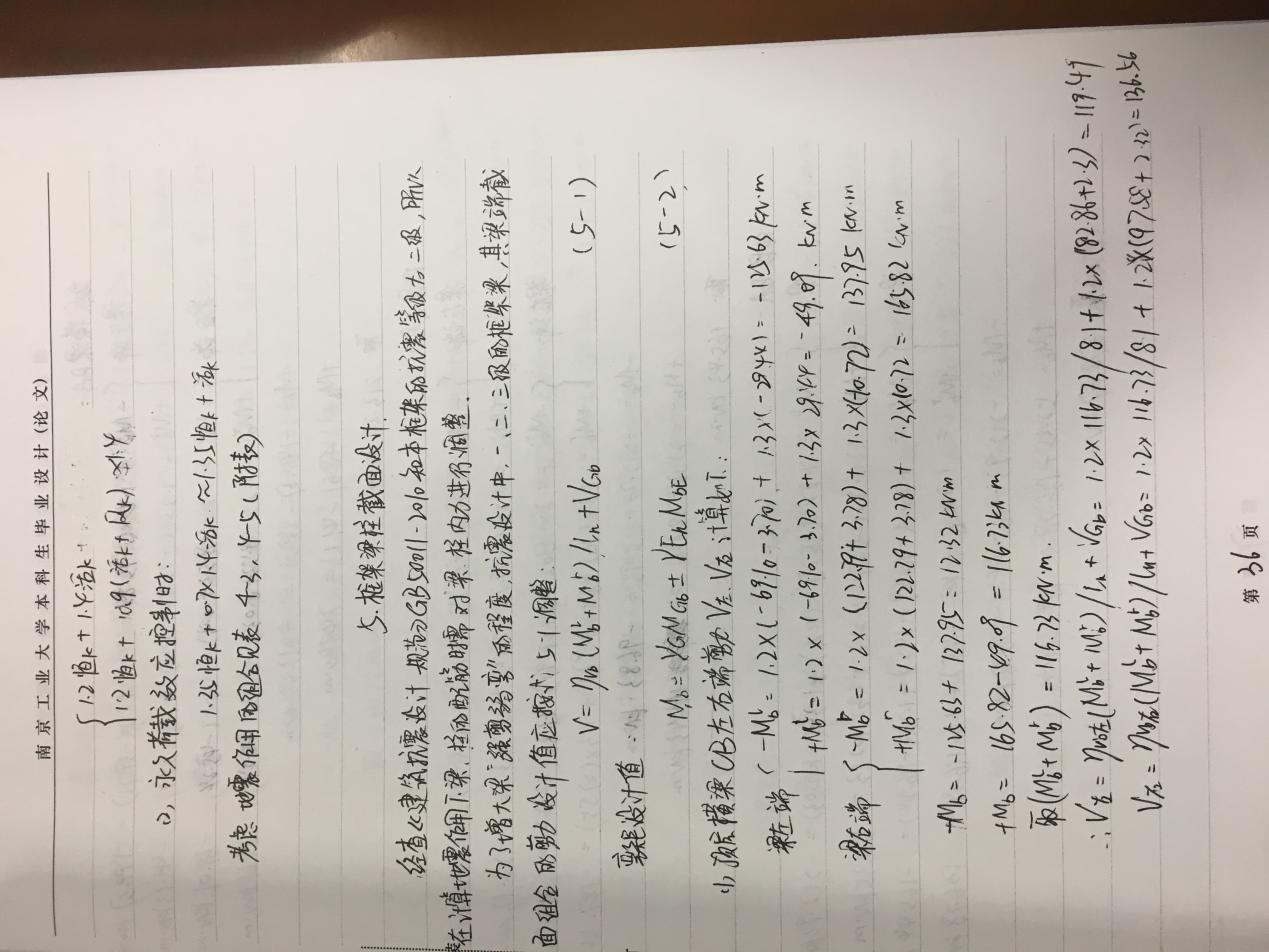 南京工业大学本科生毕业设计(论文)
{ 1.2恒k + 1.4活k
1.2恒k + 1×0.9(活k+风k)×1.4
2)、永久荷载效应控制时:
1.35恒k + 0.7×1.4活k ≈ 1.35恒k + 活k
考虑地震作用的组合见表 4-3、4-5(附表)
5.框架梁柱截面设计
经查《建筑抗震设计规范》GB50011-2010知本框架的抗震等级为二级,所以
在计算地震作用下梁、柱的配筋时需对梁、柱内力进行调整.
为了增大梁“强剪弱弯”的程度,抗震设计中,一、二、三级的框架梁,其梁端截
面组合的剪力设计值应按式 5-1调整:
V = ηvb (Mbl+Mbr)/ln + VGb (5-1)
弯矩设计值:
Mb = γGMGb ± γEhMbE (5-2)
1) 顶层横梁CB左右端剪力V左、V右计算如下:
梁左端 { -Mbl = 1.2×(-69.10-3.70) + 1.3×(-29.44) = -125.63 kN·m
+Mbl = 1.2×(-69.10-3.70) + 1.3×29.44 = -49.09. kN·m
梁右端 { -Mbr = 1.2×(122.79+3.78) + 1.3×(-10.72) = 137.95 kN·m
+Mbr = 1.2×(122.79+3.78) + 1.3×10.72 = 165.82 kN·m
+Mb = -125.63 + 137.95 = 12.32 kN·m
+Mb = 165.82-49.09 = 116.73 kN·m
取(Mbl+Mbr) = 116.73 kN·m.
∴V左 = ηvb左(Mbl+Mbr)/ln + VGb = 1.2×116.73/8.1+1.2×(82.86+2.3) = 119.49
V右 = ηvb右(Mbl+Mbr)/ln + VGb = 1.2×116.73/8.1 + 1.2×(97.58+2.32) = 136.56
第 36 页